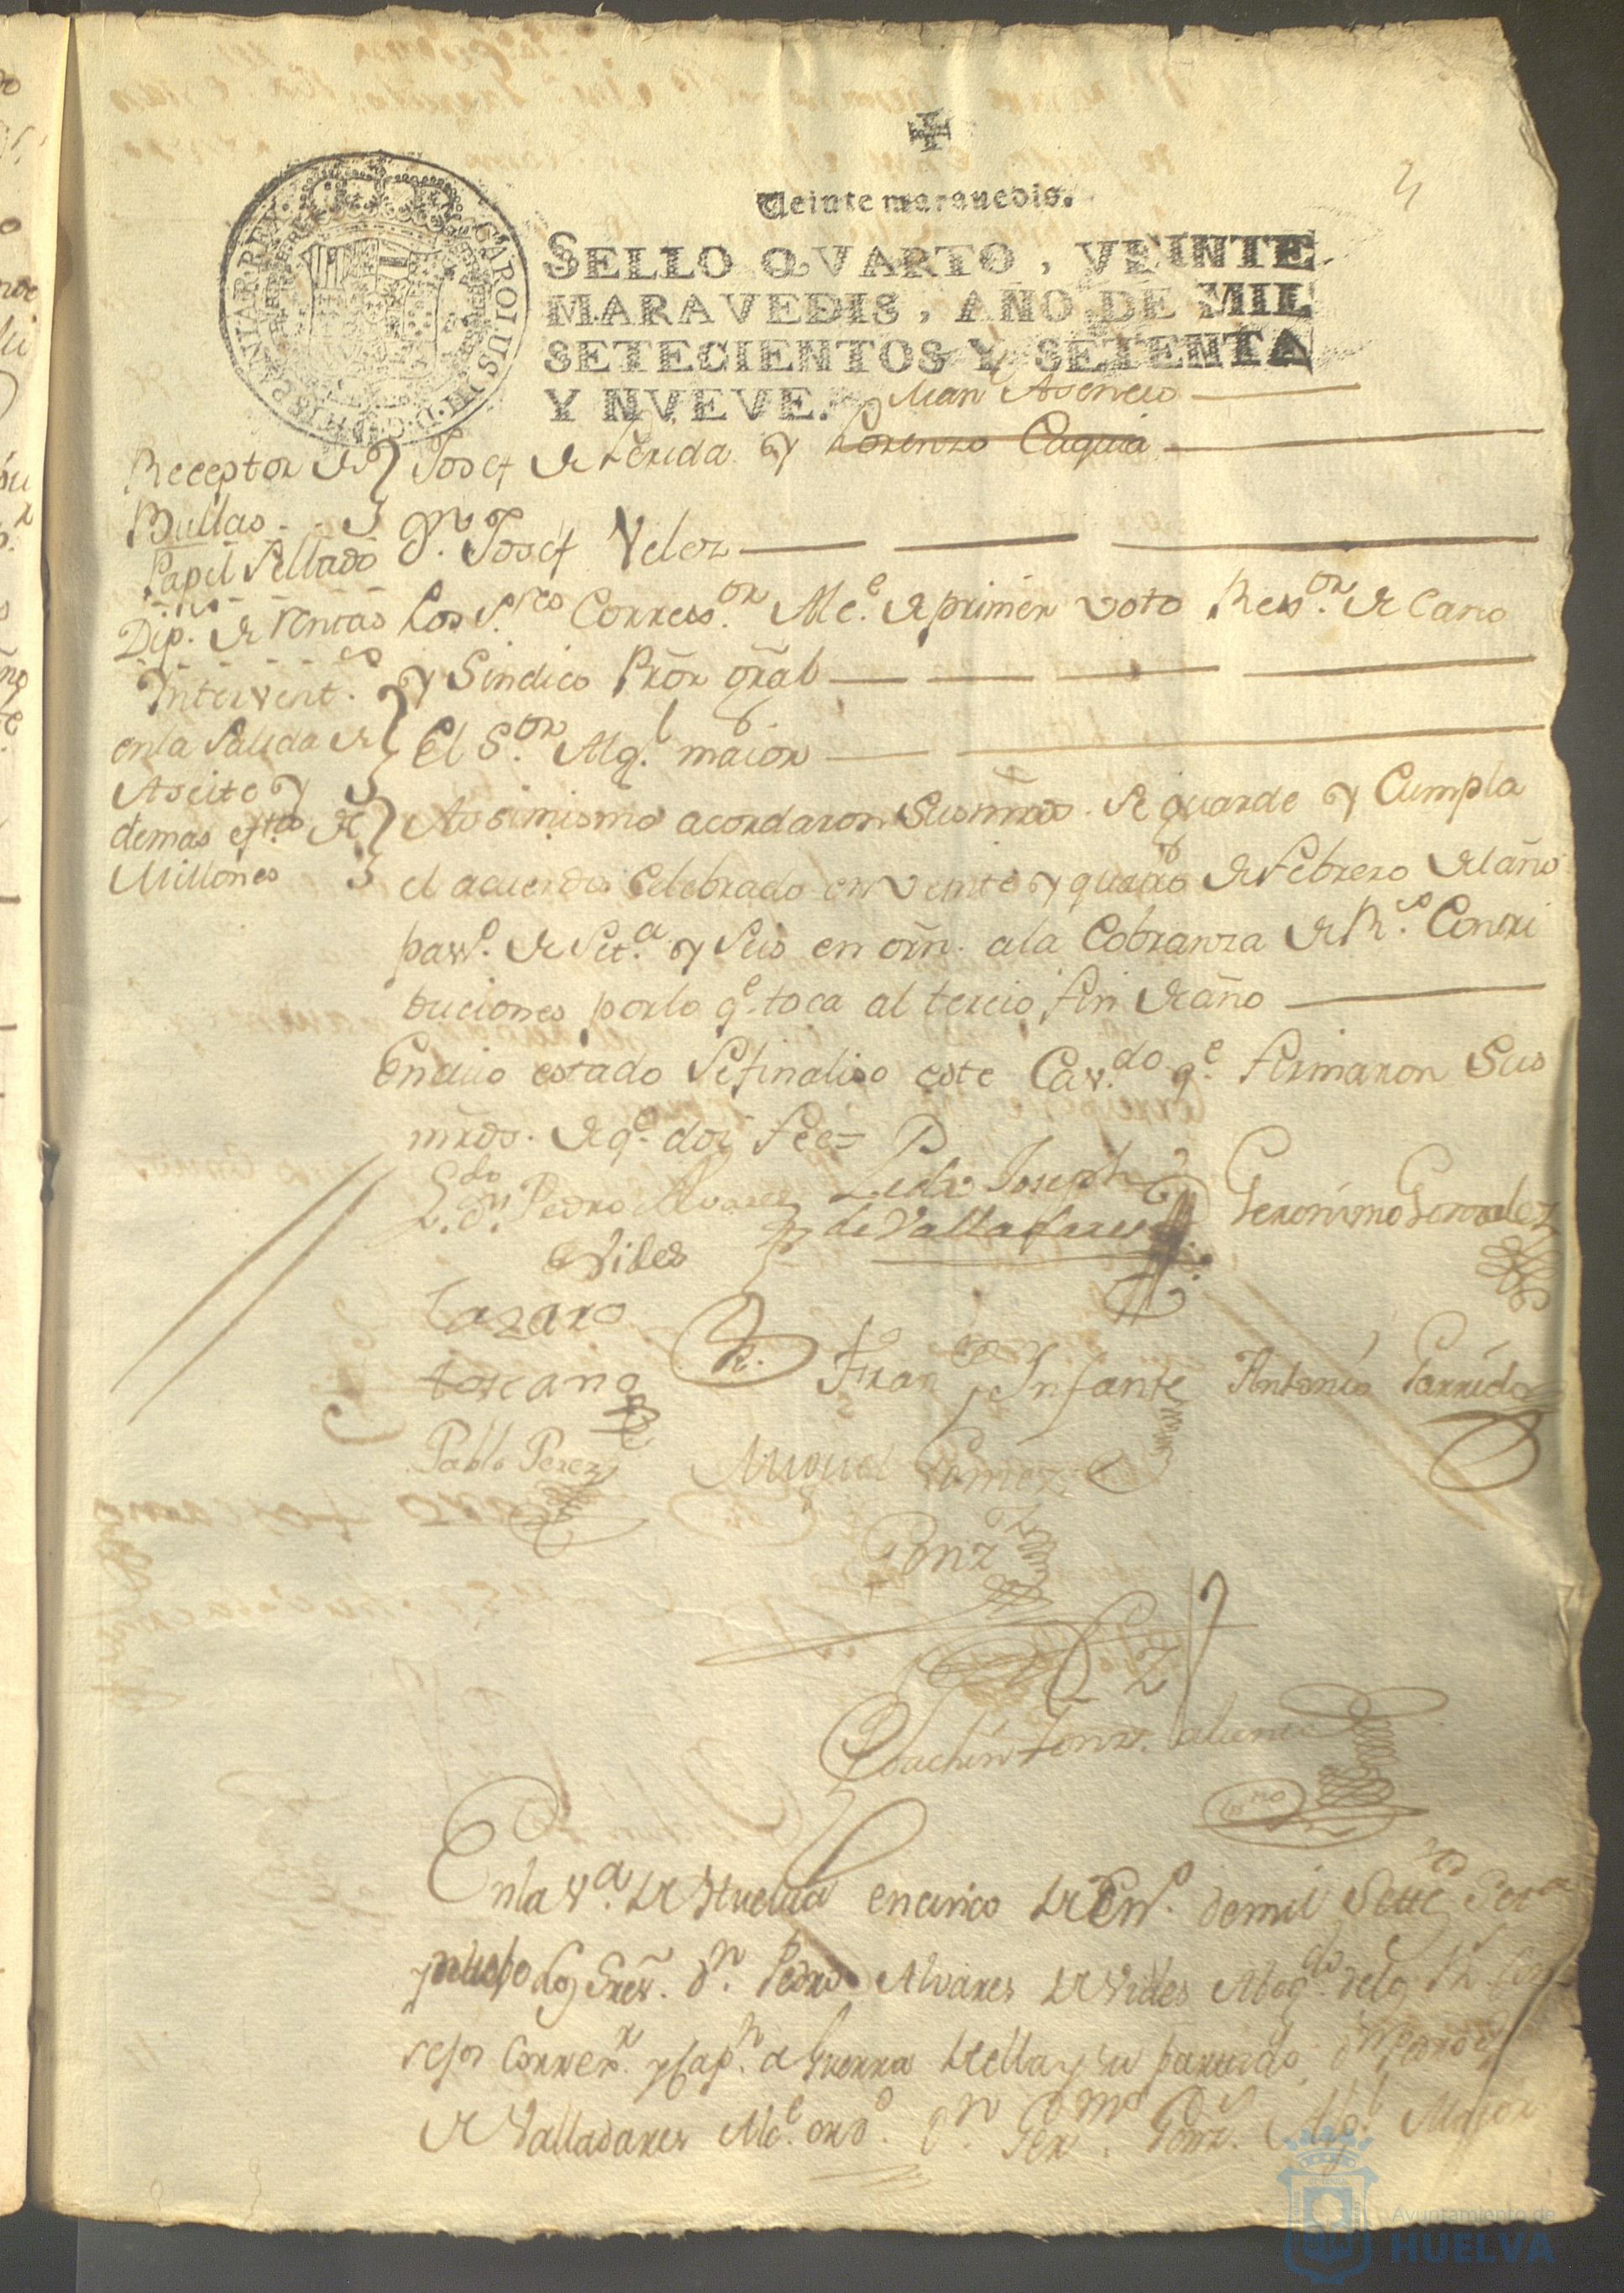 4
Veinte maravedis.
CAROLUS III. D. G. HISPANIAR. REX.
SELLO QVARTO, VEINTE
MARAVEDIS, AÑO DE MIL
SETECIENTOS Y SETENTA
Y NVEVE.
Juan Asencio
Receptor de Josef de Lerida y Lorenzo Caquia
Bullas
Papel Sellado Dn. Josef Velez
Dip.nes de Rentas Los S.res Corregor. Alc.e de primer voto Regor. de Cano
Intervent.es y Sindico Prõr gral
en la Salida de El S.or Alg.l maior
Aseite y
demas eftos. de Assimismo acordaron Susmrds. Se guarde y Cumpla
Millones el acuerdo Celebrado en veinte y quatro de Febrero del año
passo. de Set.a y Seis en orn. a la Cobranza de R.s Contri
buciones por lo q.e toca al tercio fin de año
En cuio estado Se finaliso este Cav.do q.e firmaron Sus
mrds. de q.e doi fee=
L.do Dn. Pedro Alvarez
de Vides
Pedro Joseph
de Valladares
Geronimo Gonzalez
Lazaro
toscano
R.
Fran.co Infante
Antonio Garrido
Pablo Perez
Miguel Gomez
Gonz
Joachin Gonz.
Ess.no
En la V.a de Huelva en cinco de En.o de mil Sette.s Set.a
y nueve los Sres. Dn. Pedro Alvares de Vides Abog.do de los R.s Con
sejos Corregr. y Cap.n a Guerra de ella y su partido, Dn. Pedro
de Valladares Alc.e ord.o Dn. Ger.mo Gonz. Alg.l Maior
Ayuntamiento de
HUELVA